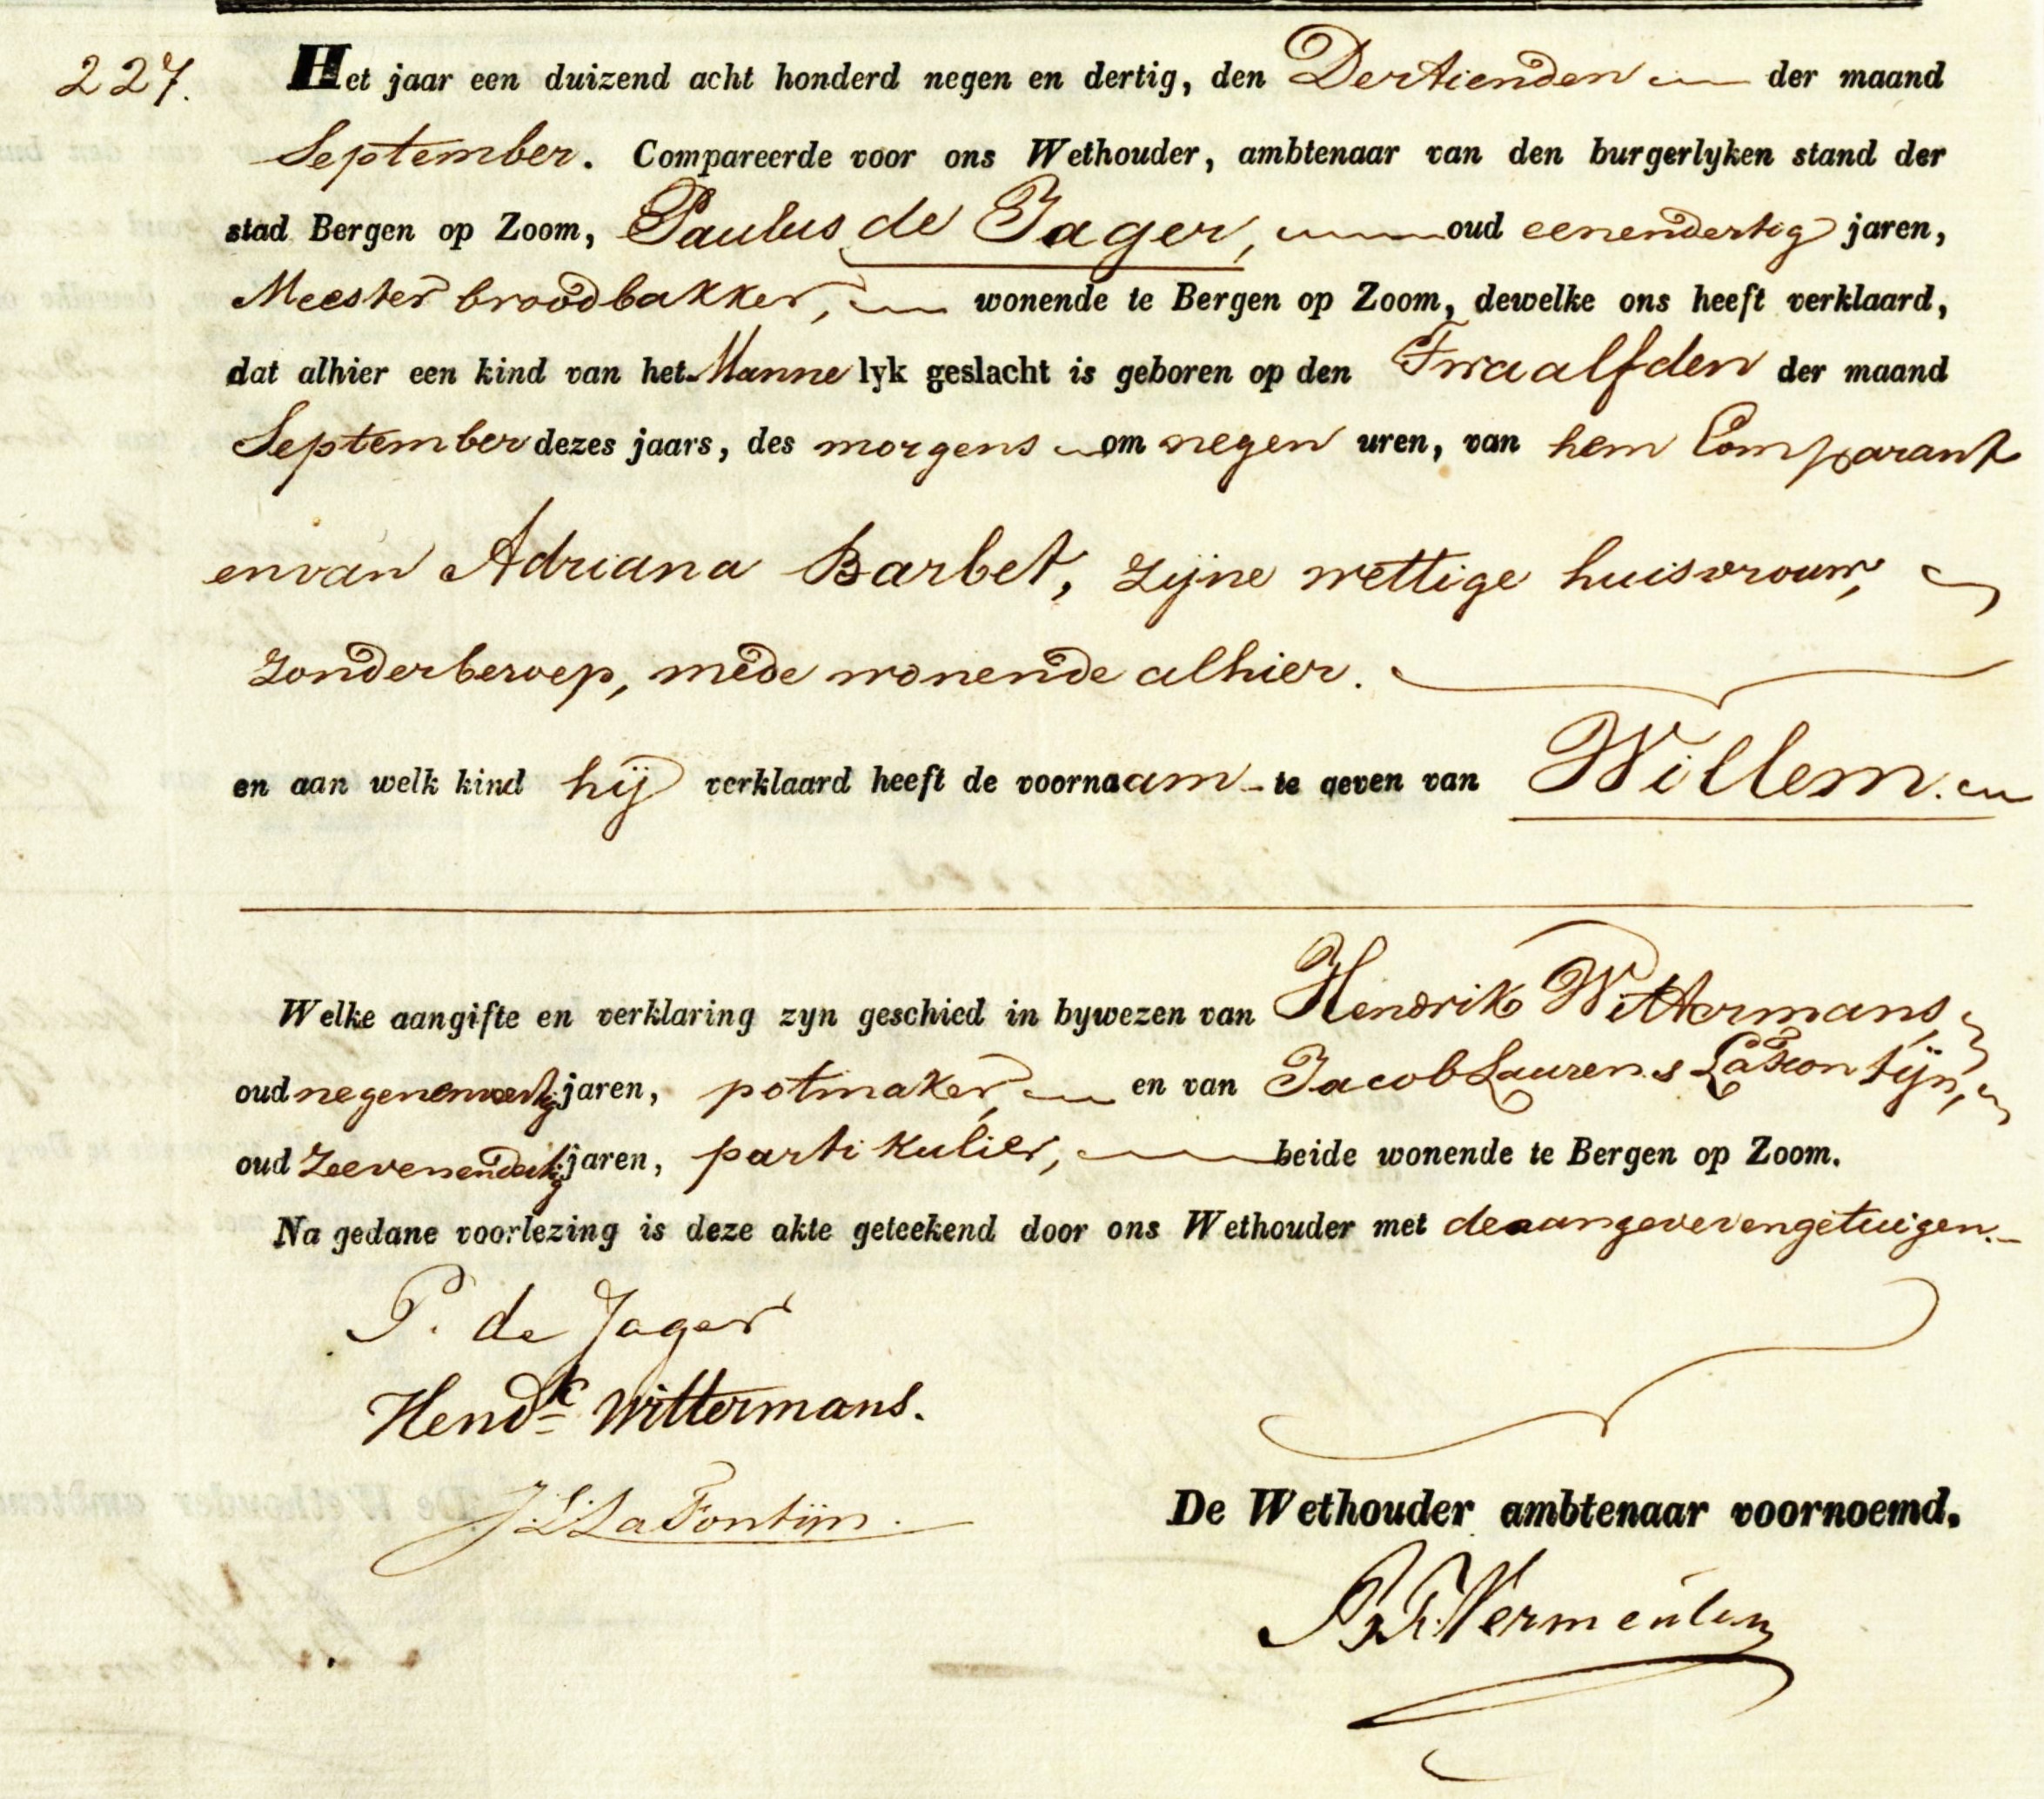 227. Het jaar een duizend acht honderd negen en dertig, den Dertienden der maand
September. Compareerde voor ons Wethouder, ambtenaar van den burgerlyken stand der
stad Bergen op Zoom, Paulus de Jager, oud eenendertig jaren,
Meester broodbakker, wonende te Bergen op Zoom, dewelke ons heeft verklaard,
dat alhier een kind van het Mannelyk geslacht is geboren op den Twaalfden der maand
September dezes jaars, des morgens om negen uren, van hem Comparant
en van Adriana Barbet, zijne wettige huisvrouw,
zonder beroep, mede wonende alhier.
en aan welk kind hij verklaard heeft de voornaam te geven van Willem.
Welke aangifte en verklaring zyn geschied in bywezen van Hendrik Wittermans,
oud jaren, potmaker, en van Jacob Laurens La Fontijn,
oud zeevenendertig jaren, partikulier, beide wonende te Bergen op Zoom.
Na gedane voorlezing is deze akte geteekend door ons Wethouder met de aangever en getuigen.
P. de Jager
Hendk Wittermans.
J. L. La Fontijn.
De Wethouder ambtenaar voornoemd,
Vermeulen